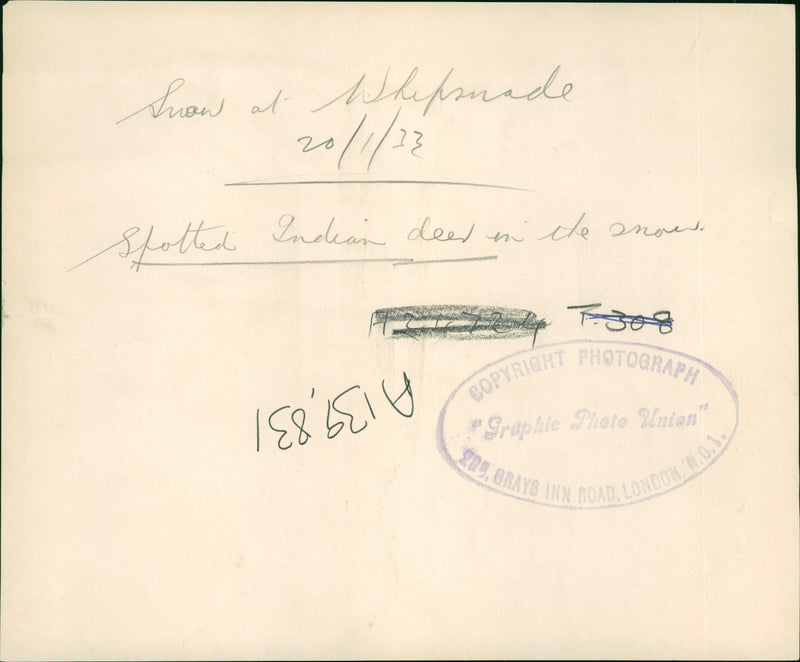 Snow at Whipsnade
20/1/33
Spotted Indian deer in the snow.
T.308
A139,831
COPYRIGHT PHOTOGRAPH
"Graphic Photo Union"
GRAYS INN ROAD, LONDON, W.C.1.